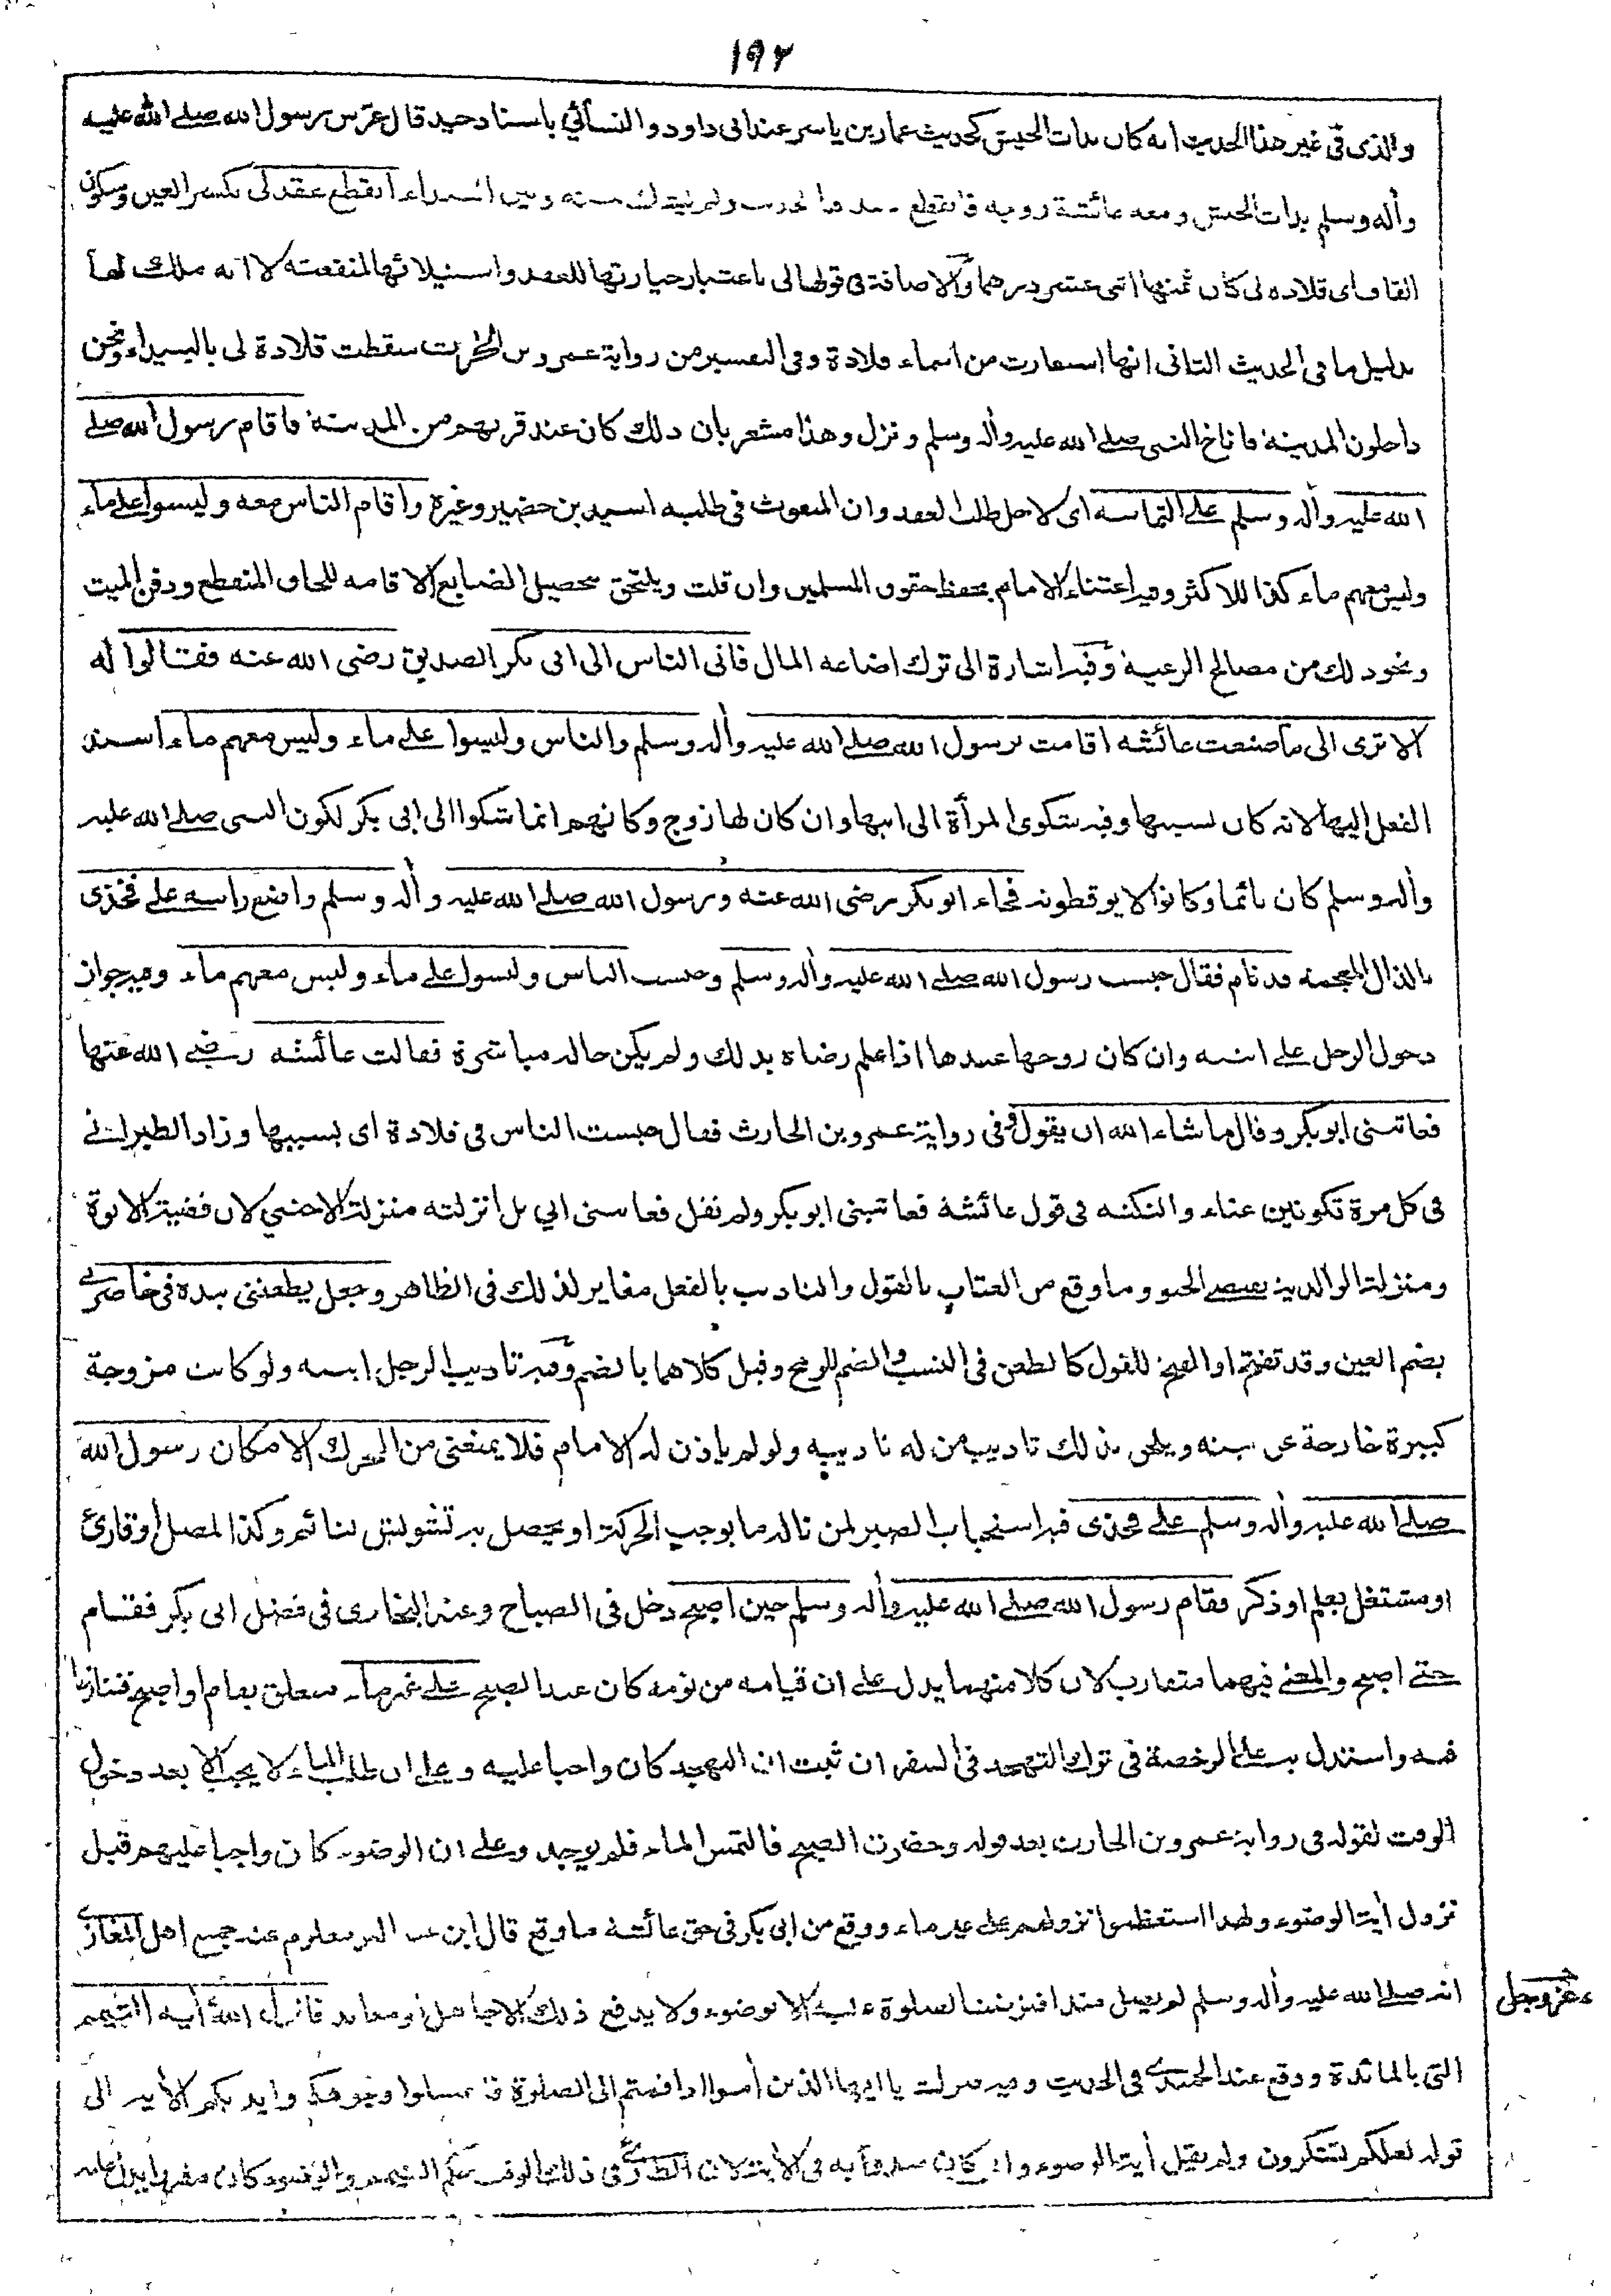 ١٩٢
والذى فى غير هذا الحديث انه كان بذات الجيش كحديث عمار بن ياسر عند ابى داود والنسائي باسناد جيد قال عرّس رسول الله صلے الله عليه
وأله وسلم بذات الجيش ومعه عائشة زوجه فانقطع انقطع عقد لى بكسر العين وسكون
القاف اى قلادة لى كان ثمنها اثنى عشر درهما والاضافة فى قولها لى باعتبار حيازتها للعقد واستيلائها لمنفعته لا انه ملك لها
بدليل ما فى الحديث الثانى انها استعارت من اسماء قلادة وفى التفسير من رواية عمرو بن الحرث سقطت قلادة لى بالبيداء ونحن
داخلون المدينة فاناخ النبى صلے الله عليه وأله وسلم ونزل وهذا مشعر بان ذلك كان عند قربهم من المدينة فاقام رسول الله صلے
الله عليه وأله وسلم علے التماسه اى لاجل طلب العقد وان المبعوث فى طلبه اسيد بن حضير وغيره وأقام الناس معه وليسوا علے ماء
وليس معهم ماء كذا للاكثر وفيه اعتناء الامام بحفظ حقوق المسلمين وان قلت ويلتحق بتحصيل الضايع الاقامه للحاق المنقطع ودفن الميت
ونحو ذلك من مصالح الرعية وفيه اشارة الى ترك اضاعه المال فاتى الناس الى ابى بكر الصديق رضى الله عنه فقالوا له
الا ترى الى ما صنعت عائشه اقامت برسول الله صلے الله عليه وأله وسلم والناس وليسوا علے ماء وليس معهم ماء اسند
الفعل اليها لانه كان بسببها وفيه شكوى المرأة الى ابيها وان كان لها زوج وكانهم انما شكوا الى ابى بكر لكون النبى صلے الله عليه
وأله وسلم كان نائما وكانوا لا يوقظونه فجاء ابو بكر رضى الله عنه ورسول الله صلے الله عليه وأله وسلم واضع راسه علے فخذى
بالذال المعجمه قد نام فقال حبست رسول الله صلے الله عليه وأله وسلم وحبست الناس وليسوا علے ماء وليس معهم ماء وفيه جواز
دخول الرجل علے ابنته وان كان زوجها عندها اذا علم رضاه بذلك ولم يكن حاله مباشرة فقالت عائشه رضے الله عنها
فعاتبنى ابو بكر وقال ما شاء الله ان يقول وفى رواية عمرو بن الحارث فقال حبست الناس فى قلادة اى بسببها وزاد الطبرانے
فى كل مرة تكونين عناء والنكته فى قول عائشة فعاتبنى ابو بكر ولم تقل فعاتبنى ابي بل انزلته منزلة الاجنبي لان قضية الابوة
ومنزلة الوالدية يقتضے الحنو وما وقع من العتاب بالقول والتاديب بالفعل مغاير لذلك فى الظاهر وجعل يطعننى بيده فى خاصرتے
بضم العين وقد تفتح او الفتح للقول كالطعن فى النسب والضم للرمح وقيل كلاهما بالضم وفيه تاديب الرجل ابنته ولو كانت مزوجة
كبيرة خارجة عن بيته ويلحق بذلك تاديب من له تاديبه ولو لم ياذن له الامام فلا يمنعنى من التحرك الا مكان رسول الله
صلے الله عليه وأله وسلم علے فخذى فيه استحباب الصبر لمن ناله ما يوجب الحركة او يحصل به تشويش لنائم وكذا المصل او قارئ
او مشتغل بعلم او ذكر فقام رسول الله صلے الله عليه وأله وسلم حين اصبح دخل فى الصباح وعند البخارى فى فضل ابى بكر فقام
حتے اصبح والمعنے فيهما متقارب لان كلا منهما يدل علے ان قيامه من نومه كان عند الصبح علے غير ماء متعلق بقام او اصبح فتنازعا
فيه واستدل به علے الرخصة فى ترك التهجد فى السفر ان ثبت ان التهجد كان واجبا عليه و علے ان طلب الماء لا يجب الا بعد دخول
الوقت لقوله فى رواية عمرو بن الحارث بعد قوله وحضرت الصبح فالتمس الماء فلم يوجد وعلے ان الوضوء كان واجبا عليهم قبل
نزول أية الوضوء ولهذا استعظموا نزولهم على غير ماء ووقع من ابى بكر فى حق عائشة ما وقع قال ابن عبد البر معلوم عند جميع اهل المغازے
انه صلے الله عليه وأله وسلم لم يصل منذ افترضت الصلوة عليه الا بوضوء ولا يدفع ذلك الا جاهل او معاند فانزل الله أية التيمم
عز وجل
التى بالمائدة ووقع عند الحميدے فى الحديث وفيه فنزلت يا ايها الذين أمنوا اذا قمتم الى الصلوة فاغسلوا وجوهكم وايديكم الأية الى
قوله لعلكم تشكرون ولم يقل أية الوضوء وان كان مبدوأ به فى الأية لان الطارے فى ذلك الوقت حكم التيمم والوضوء كان مقررا يدل عليه